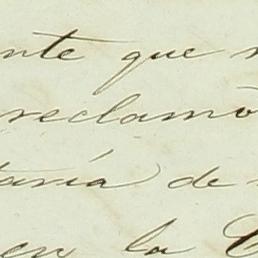 nte que
reclamó
taría de
en la